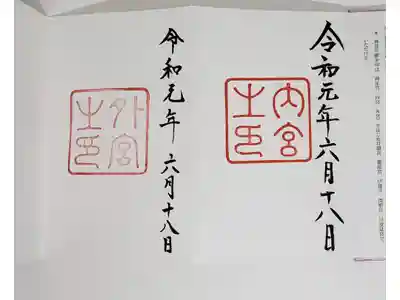 令和元年六月十八日
内宮
之印
令和元年六月十八日
外宮
之印